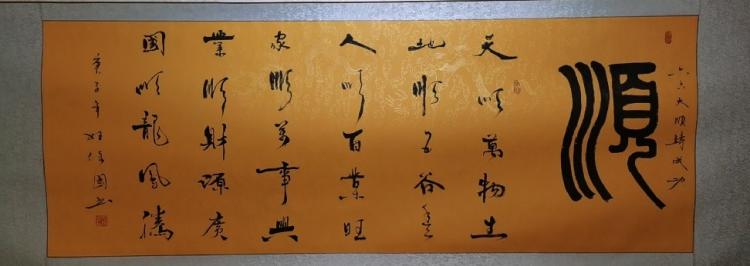 六六大順成功
順
天順萬物生
地順五谷豐
人順百業旺
家順萬事興
業順財源廣
國順龍鳳騰
庚子年國書